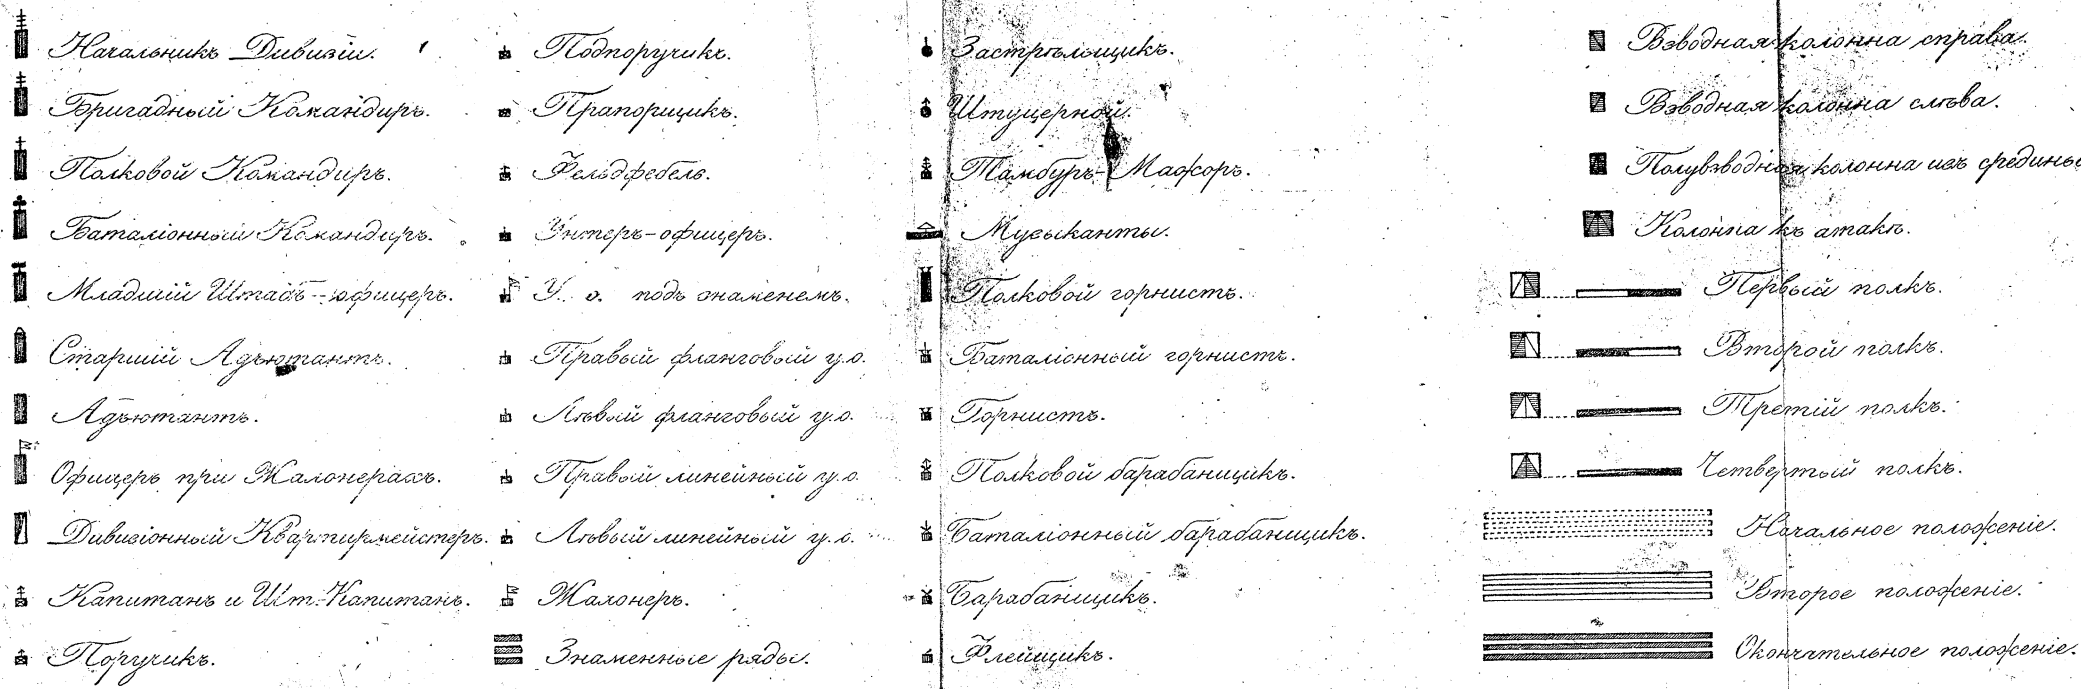 Начальникъ Дивизіи.
Бригадный Командиръ.
Полковой Командиръ.
Баталіонный Командиръ.
Младшій Штабъ-офицеръ.
Старшій Адъютантъ.
Адъютантъ.
Офицеръ при Жалонерахъ.
Дивизіонный Квартирмейстеръ.
Капитанъ и Шт.-Капитанъ.
Поручикъ.
Подпоручикъ.
Прапорщикъ.
Фельдфебель.
Унтеръ-офицеръ.
У. о. подъ знаменемъ.
Правый фланговый у.о.
Лѣвый фланговый у.о.
Правый линейный у.о.
Лѣвый линейный у.о.
Жалонеръ.
Знаменные ряды.
Застрѣльщикъ.
Штуцерной.
Тамбуръ-Мажоръ.
Музыканты.
Полковой горнистъ.
Баталіонный горнистъ.
Горнистъ.
Полковой барабанщикъ.
Баталіонный барабанщикъ.
Барабанщикъ.
Флейщикъ.
Взводная колонна справа.
Взводная колонна слѣва.
Полувзводная колонна изъ средины
Колонна къ атакѣ.
Первый полкъ.
Второй полкъ.
Третій полкъ.
Четвертый полкъ.
Начальное положеніе.
Второе положеніе.
Окончательное положеніе.